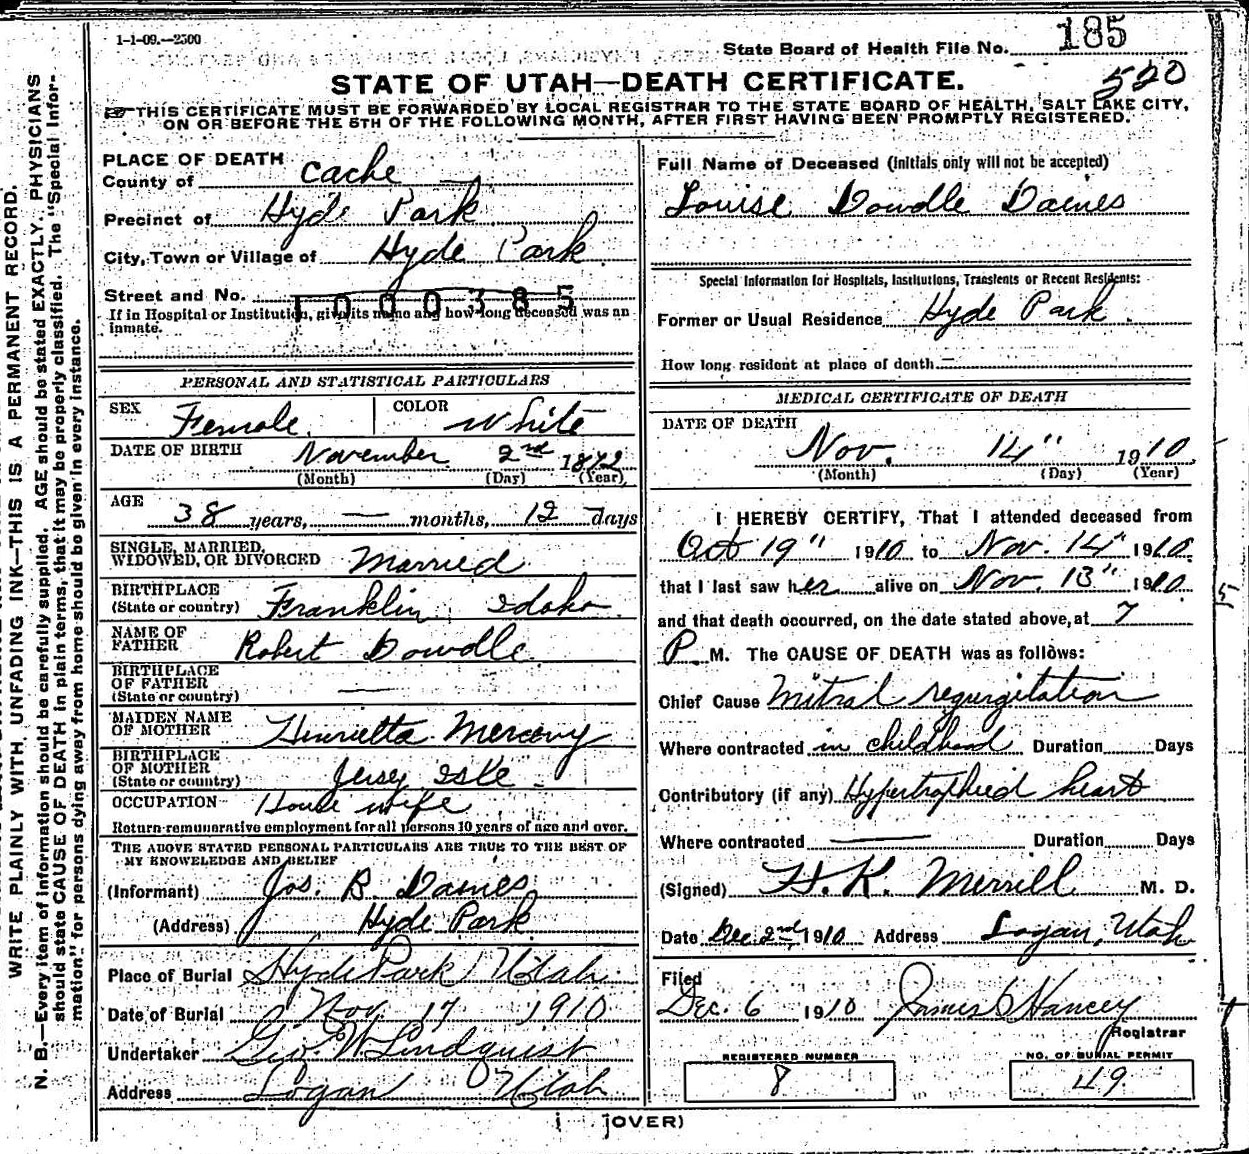 1-1-09.—2500
State Board of Health File No. 185
520
STATE OF UTAH—DEATH CERTIFICATE.
THIS CERTIFICATE MUST BE FORWARDED BY LOCAL REGISTRAR TO THE STATE BOARD OF HEALTH, SALT LAKE CITY,
ON OR BEFORE THE 5TH OF THE FOLLOWING MONTH, AFTER FIRST HAVING BEEN PROMPTLY REGISTERED.
WRITE PLAINLY WITH UNFADING INK—THIS IS A PERMANENT RECORD.
N. B.—Every item of information should be carefully supplied. AGE should be stated EXACTLY. PHYSICIANS
should state CAUSE OF DEATH in plain terms, that it may be properly classified. The "Special Infor-
mation" for persons dying away from home should be given in every instance.
PLACE OF DEATH
County of Cache
Precinct of Hyde Park
City, Town or Village of Hyde Park
Street and No.
1000385
If in Hospital or Institution, give its name and how long deceased was an
inmate.
PERSONAL AND STATISTICAL PARTICULARS
SEX Female COLOR White
DATE OF BIRTH November 2nd 1872
(Month) (Day) (Year)
AGE 38 years, — months, 12 days
SINGLE, MARRIED,
WIDOWED, OR DIVORCED Married
BIRTHPLACE
(State or country) Franklin, Idaho
NAME OF
FATHER Robert Dowdle
BIRTHPLACE
OF FATHER
(State or country) —
MAIDEN NAME
OF MOTHER Henrietta
BIRTHPLACE
OF MOTHER
(State or country) Jersey Isle
OCCUPATION House wife
Return remunerative employment for all persons 10 years of age and over.
THE ABOVE STATED PERSONAL PARTICULARS ARE TRUE TO THE BEST OF
MY KNOWLEDGE AND BELIEF
(Informant) Jos. B. Daines
(Address) Hyde Park
Place of Burial Hyde Park Utah
Date of Burial Nov. 17 1910
Undertaker Geo. W. Lindquist
Address Logan Utah
Full Name of Deceased (Initials only will not be accepted)
Louise Dowdle Daines
Special Information for Hospitals, Institutions, Transients or Recent Residents:
Former or Usual Residence Hyde Park.
How long resident at place of death —
MEDICAL CERTIFICATE OF DEATH
DATE OF DEATH
Nov. 14" 1910
(Month) (Day) (Year)
I HEREBY CERTIFY, That I attended deceased from
Oct 19" 1910 to Nov. 14" 1910
that I last saw her alive on Nov. 13" 1910.
and that death occurred, on the date stated above, at 7
P. M. The CAUSE OF DEATH was as follows:
Chief Cause Mitral regurgitation
Where contracted in childhood Duration Days
Contributory (if any) Hypertrophied heart
Where contracted — Duration Days
(Signed) H. K. Merrill M. D.
Date Dec. 2nd 1910 Address Logan, Utah
Filed
Dec. 6 1910 James Hancey
Registrar
REGISTERED NUMBER
8
NO. OF BURIAL PERMIT
49
(OVER)